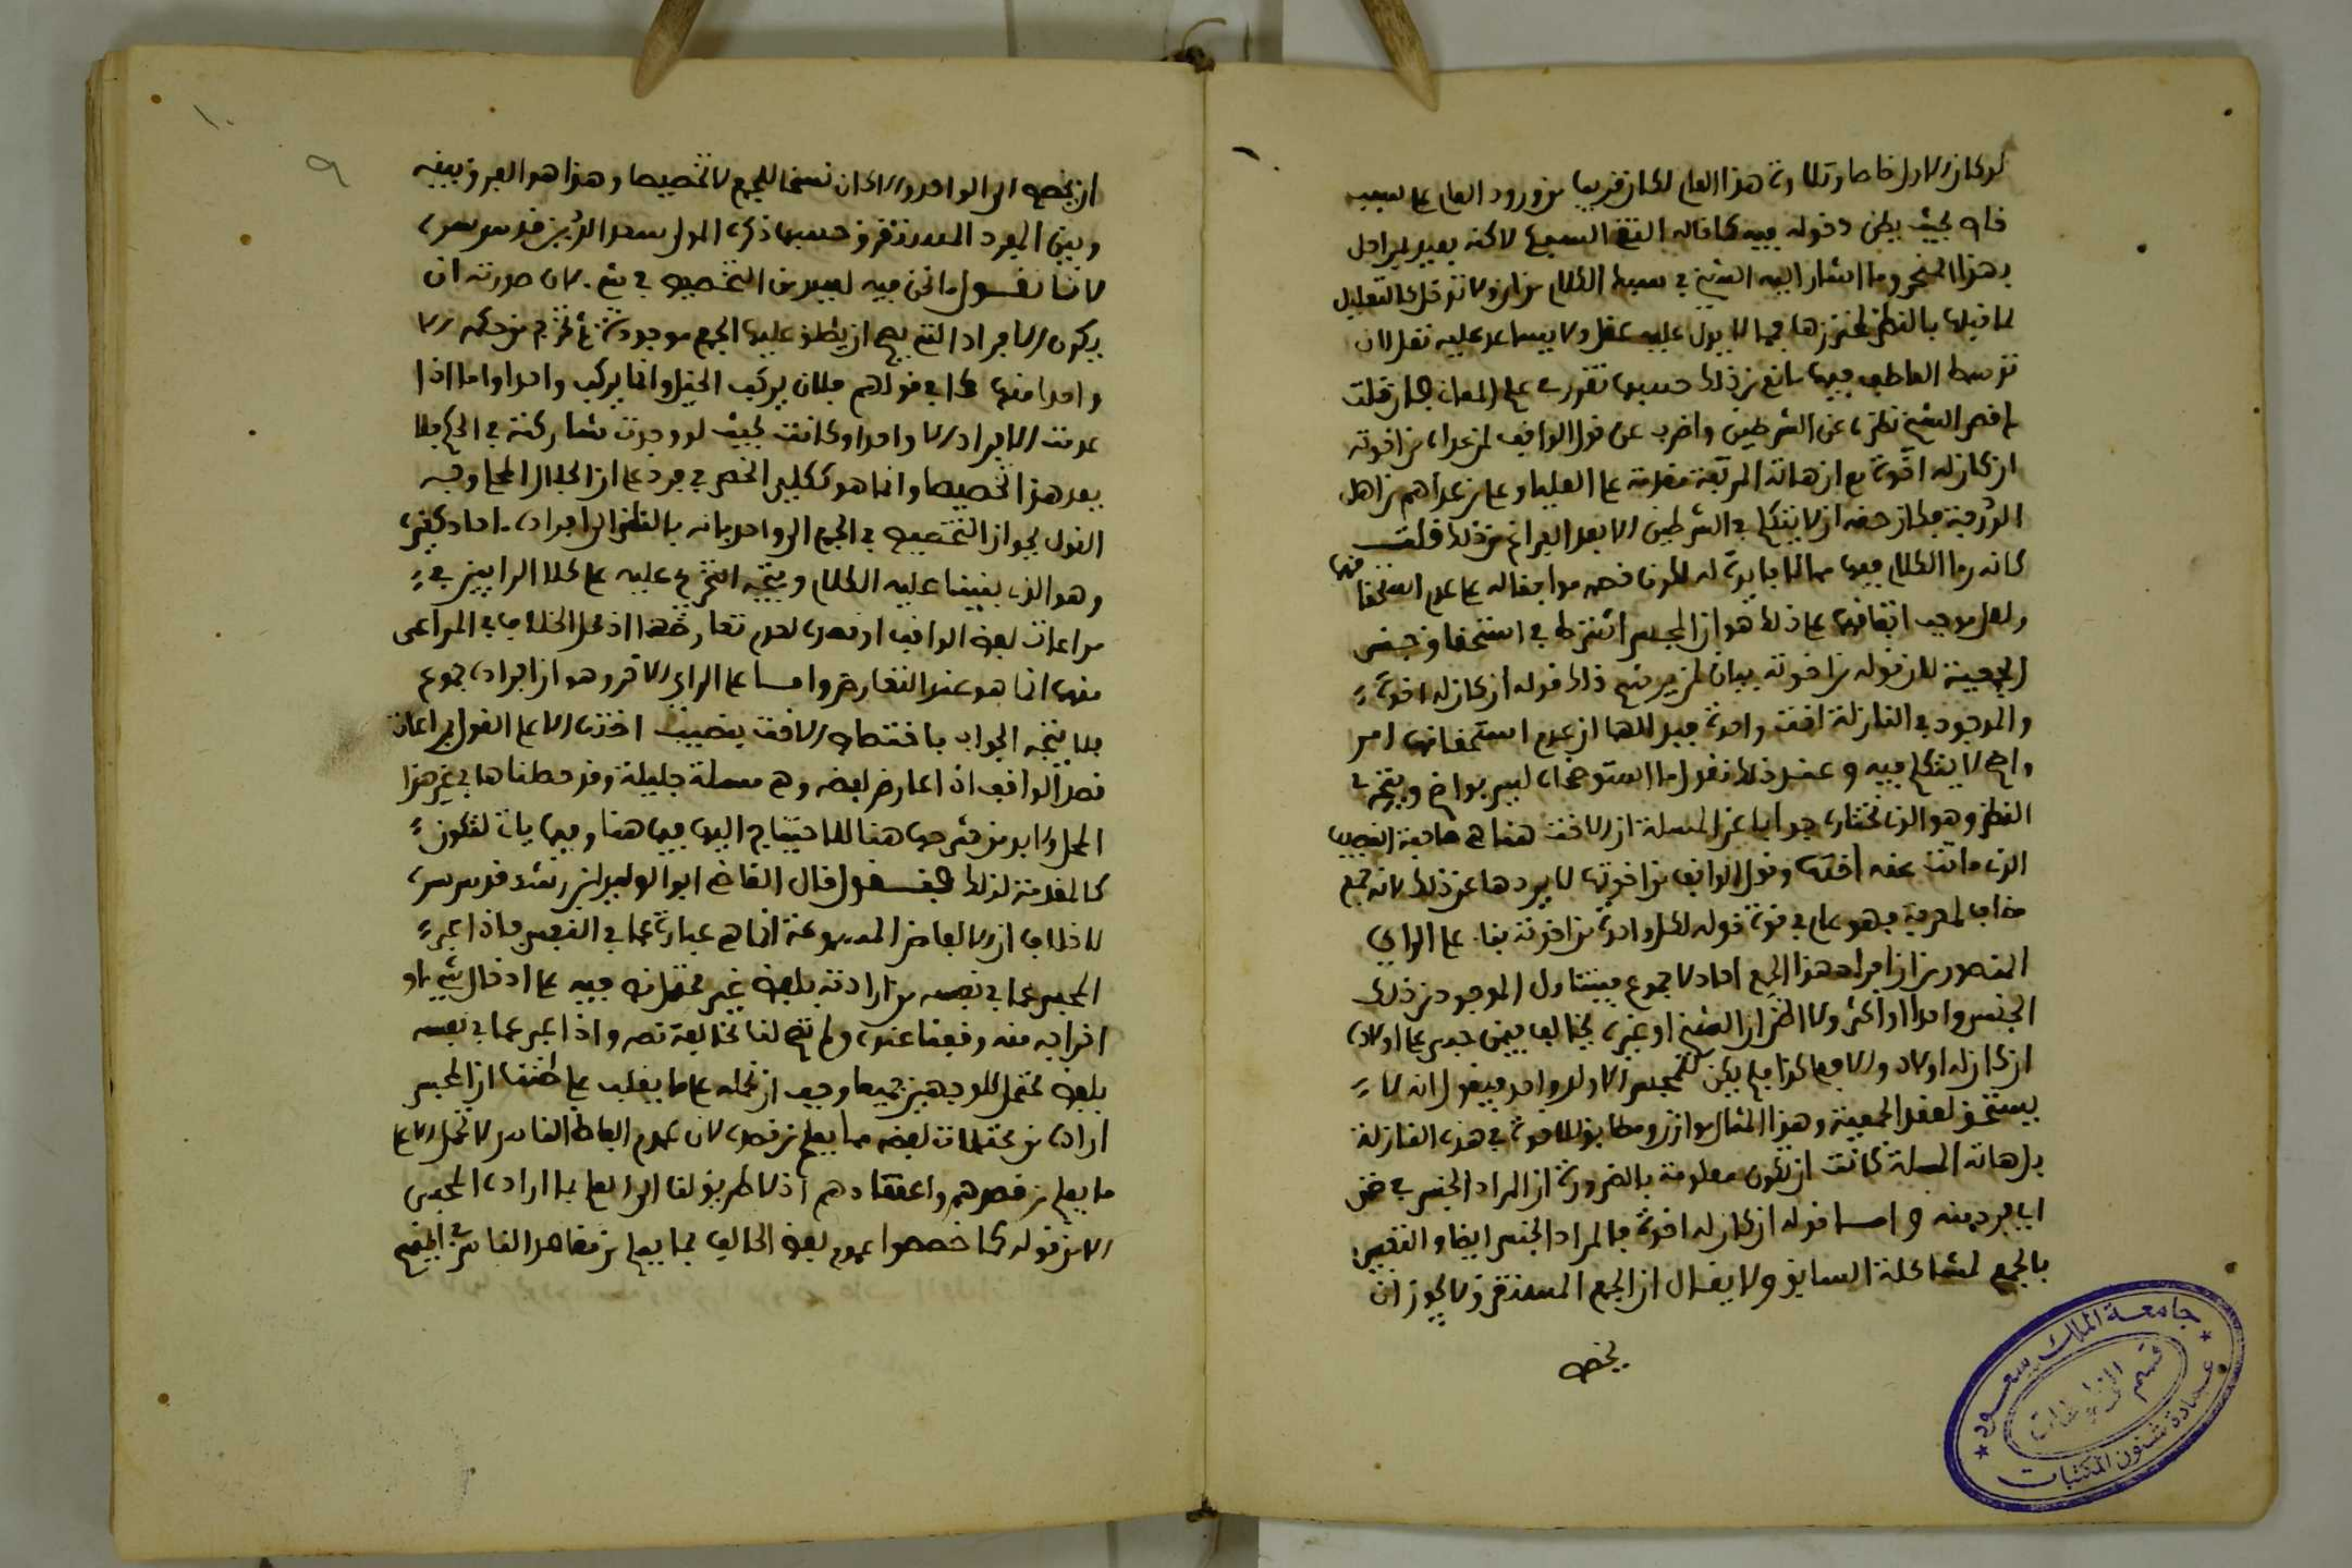 لو كان الاول خاصا وتلاوة هذا العام لكان قريبا من ورود العام على سببه
فانه بحيث يظن دخوله فيه كما قاله التقي السبكي لاكنه بعيد المراحل
بهذا المنحى وما اشار اليه الشيخ في بسط الكلام من ان ولا توقف التعليل
لما قبلها بالنظر فمما لا يدل عليه عقل ولا يساعد عليه نقل لان
توسط العاطف فيها مانع من ذلك حسبما تقرر في علم المعاني فان قلت
لم قصر الشيخ نظره عن الشرطين واضرب عن قول الواقف لمن عداه من اخوته
ان كان له اخوة مع ان هاته المرتبة مقدمة على العليا وعلى من عداهم من اهل
المرتبة فكان حقه ان لا يتكلم في الشرطين الا بعد الفراغ من ذلك قلت
كانه رءا الكلام فيها مما لا فايدة له لكون خصمه موافقا له على عدم استحقاقها
ولعل موجب اتفاقهما على ذلك هو ان المحبس اشترط في استحقاق جنس
الجمعية لان قوله من اخوته بيان لمن يرشح ذلك قوله ان كان له اخوة
والموجود في النازلة اخت واحدة فيدل لها ان عدم استحقاقها امر
واضح لا يتكلم فيه وعند ذلك نقول اما استوضحاه ليس بواضح ويتجه في
النظر وهو الذي نختاره جوابا عن المسئلة ان الاخت هنا هي صاحبة النصيب
الذي ماتت عنه اختها وقول الواقف من اخوتها لا يردها عن ذلك لانه جمع
مضاف لمعرفة فهو عام في قوة قوله لكل واحدة من اخوته بناء على الراي
المنصور من ان افراد هذا الجمع احاد لا جموع فيتناول الموجود من ذلك
الجنس واحدا او اكثر ولا اظن ان الشيخ او غيره يخالف فيمن حبس على اولاده
ان كان له اولاد والا فعلى كذا فلم يكن للمحبس الا ولد واحد فيقول انه لا
يستحق لفقد الجمعية وهذا المثال موازن ومطابق للاخوة في هذه النازلة
بل هاته المسئلة كانت ان تكون معلومة بالضرورة ان المراد الجنس في ضمن
اي فرد منه واما قوله ان كان له اخوة فالمراد الجنس ايضا والتعبير
بالجمع لمشاكلة السابق ولا يقال ان الجمع المستغرق لا يجوز ان
يخص
٩
١٠
ان يخص الى الواحد والا كان نسخا للجمع لا تخصيصا وهذا هو الفرق بينه
وبين المفرد المستغرق حسبما ذكره المولى سعد الدين قدس سره
لاننا نقول ما نحن فيه ليس من التخصيص في شيء لان صورته ان
يكون الافراد التي يصح ان يطلق عليها الجمع موجودة ثم تخرج من حكمه الا
واحدا منها كما في قولهم فلان يركب الخيل وانما يركب واحدا واما اذا
عدمت الافراد الا واحدا وكانت بحيث لو وجدت شاركته في الحكم فلا
يعد هذا تخصيصا وانما هو ككلي انحصر في فرد على ان الجلال المحلي وجه
القول بجواز التخصيص في الجمع الى واحد بانه بالنظر الى افراده احاد كغيره
وهو الذي بنينا عليه الكلام ويتجه التخريج عليه على كلا الرايين في
مراعات لفظ الواقف او قصده لعدم تعارضهما اذ محل الخلاف في المراعى
منهما انما هو عند التعارض واما على الراي الاخر وهو ان افراده جموع
فلا يتجه الجواب باختصاص الاخت بنصيب اختها الا على القول بمراعات
قصد الواقف اذا عارض لفظه وهي مسئلة جليلة وقد حققناها في غير هذا
المحل ولابد من شرحها هنا للاحتياج اليها فيما هنا وفيما ياتي لتكون
كالمقدمة لذلك فنقول قال القاضي ابو الوليد ابن رشد قدس سره
لا خلاف ان الالفاظ المسموعة انما هي عبارة عما في النفس فاذا عبر
المحبس عما في نفسه من ارادته بلفظ غير محتمل نص فيه على ادخال شيء او
اخراجه منه وقفنا عنده ولم تصح لنا مخالفة نصه واذا عبر عما في نفسه
بلفظ محتمل للوجهين جميعا وجب ان نحمله على ما يغلب على ظننا ان المحبس
اراده من محتملات لفظه مما يعلم من قصده لان عموم الفاظ الناس لا تحمل الا على
ما يعلم من قصدهم واعتقادهم اذ لا طريق لنا الى العلم بما اراده المحبس
الا من قوله كما خصصوا عموم لفظ الحالف بما يعلم من مقاصد الناس في ايمانهم
جامعة الملك سعود
عمادة شئون المكتبات
قسم المخطوطات